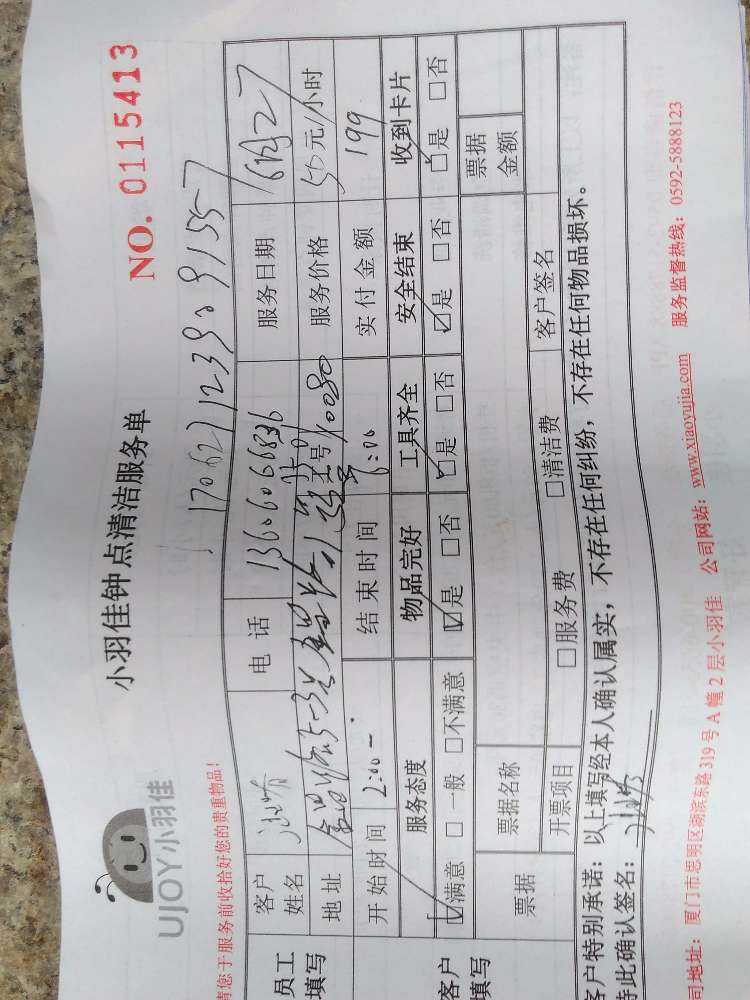 UJOY小羽佳
小羽佳钟点清洁服务单
NO. 0115413
请您于服务前收拾好您的贵重物品!
1706271239091557
员工填写
客户姓名 电话 13606066836 服务日期 6月27
地址 工号 10080 服务价格 50元/小时
开始时间 2:00 结束时间 6:00 实付金额 199
客户填写
服务态度 物品完好 工具齐全 安全结束 收到卡片
☑满意 □一般 □不满意 ☑是 □否 ☑是 □否 ☑是 □否 ☑是 □否
票据 票据名称 票据金额
开票项目 □服务费 □清洁费 客户签名
客户特别承诺：以上填写经本人确认属实，不存在任何纠纷，不存在任何物品损坏。
特此确认签名：
司地址：厦门市思明区湖滨东路319号A幢2层小羽佳 公司网站：www.xiaoyujia.com 服务监督热线：0592-5888123